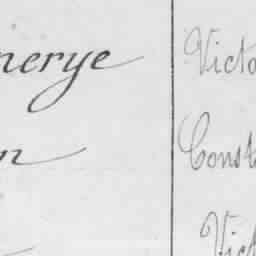 nerye Victo
n Const
Vict